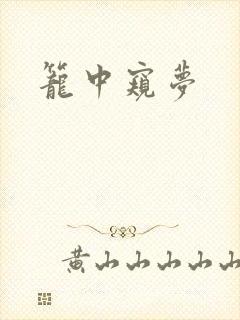 籠中窺夢
黄山山山山山